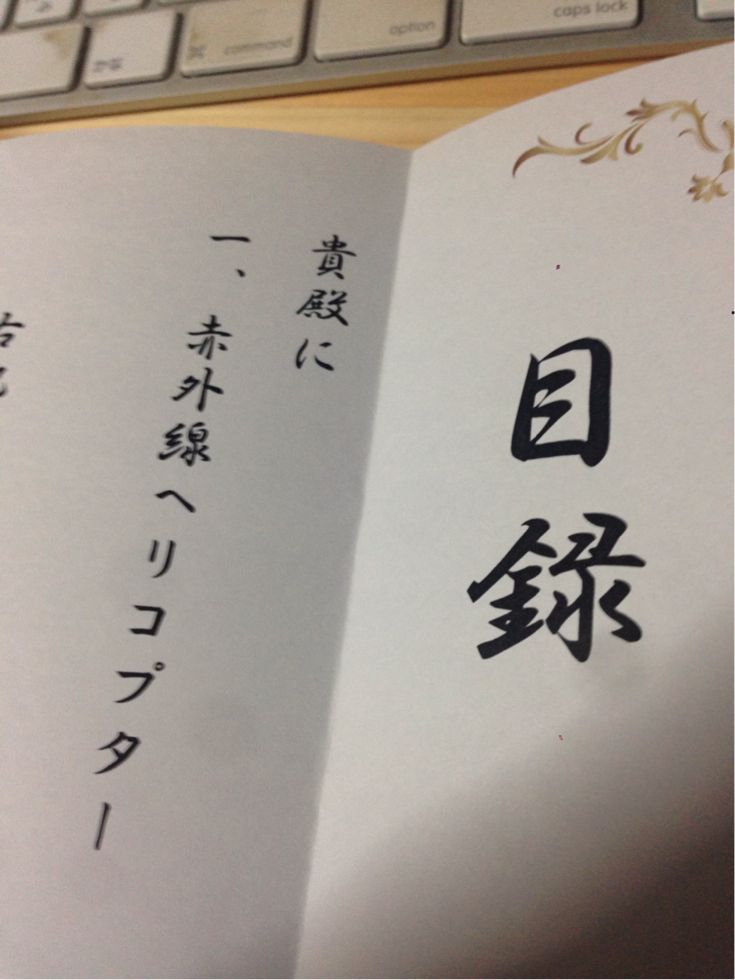 目録
貴殿に
一、赤外線ヘリコプター
caps lock
option
command
かな